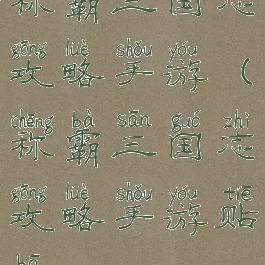 称霸三国志
gōng lüè shǒu yóu
攻略手游（
chēng bà sān guó zhì
称霸三国志
gōng lüè shǒu yóu tiē
攻略手游贴
bā